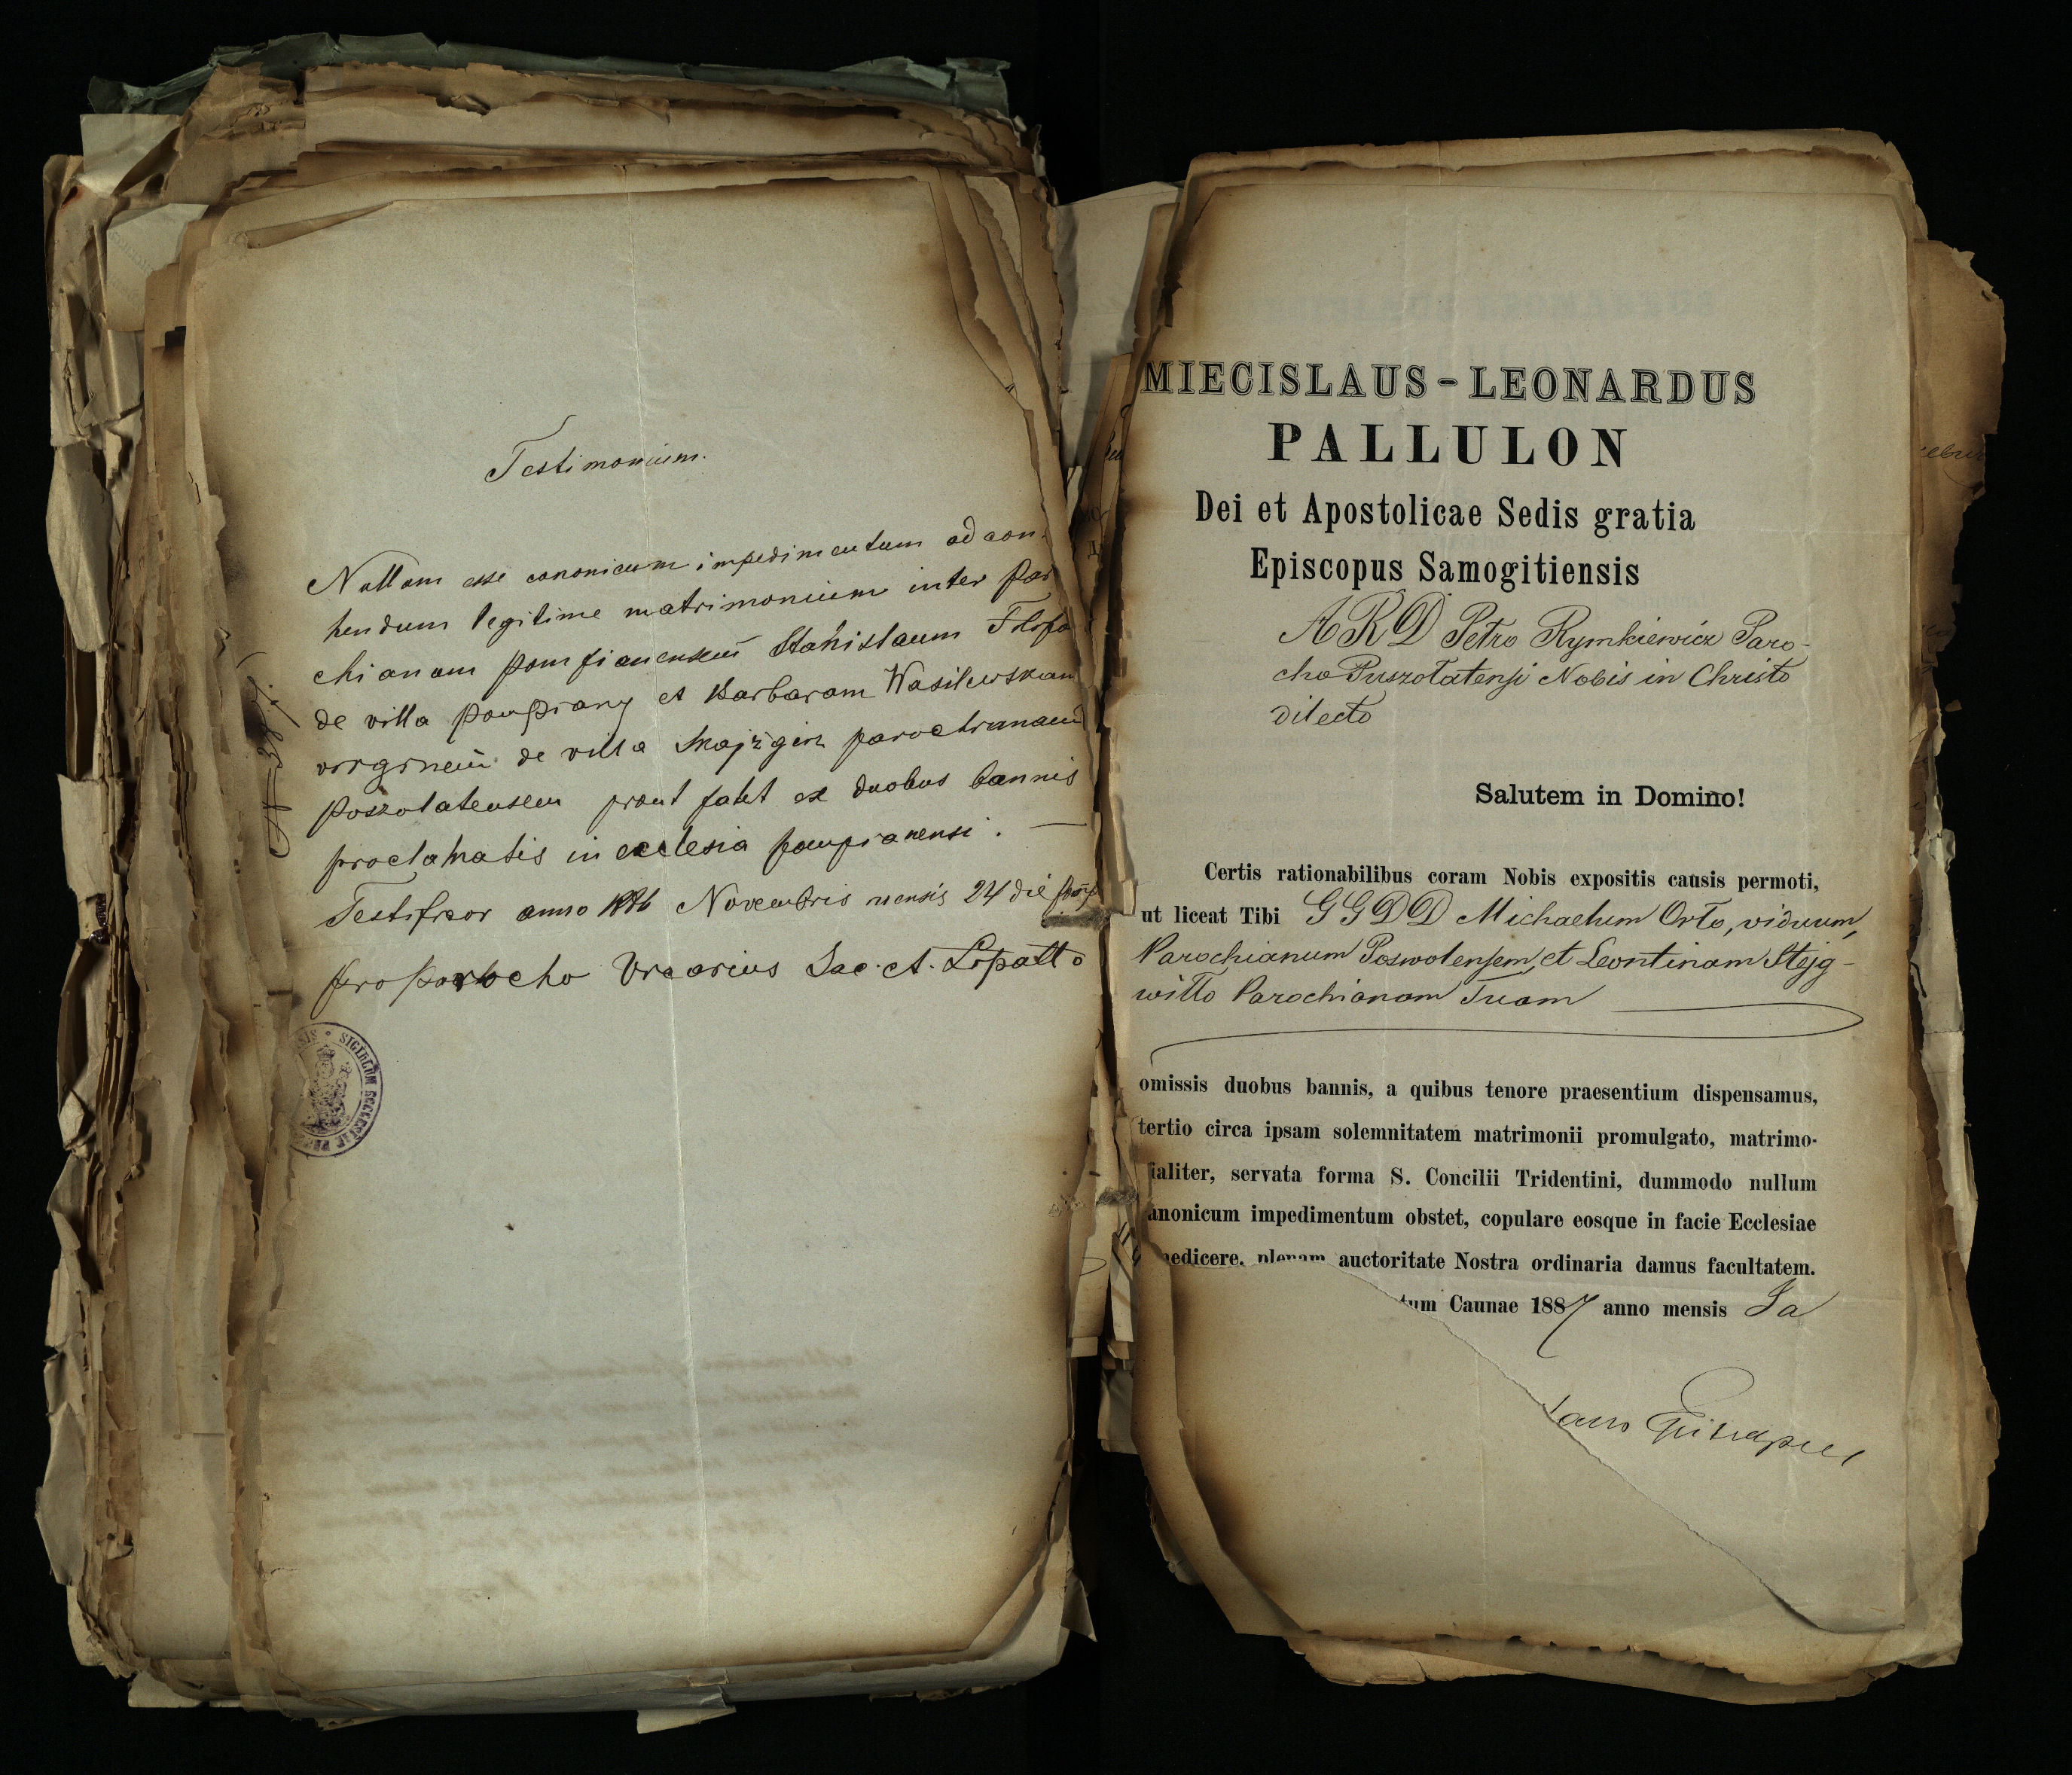 Testimonium.
Nullum esse canonicum impedimentum ad con-
hendum legitime matrimonium inter Par
chianum pompianensem Stanislaum
de villa Pompiany et Barbaram Wasilewskan
virginem de villa Skajzgirz parochianam
poszolatensem prout patet ex duobus bannis
proclamatis in ecclesia pompianensi. —
Testificor anno 1886 Novembris mensis 24 die
pro Parocho Vicarius Sac. A. Lopatto
SIGILLUM ECCLESIAE
MIECISLAUS-LEONARDUS
PALLULON
Dei et Apostolicae Sedis gratia
Episcopus Samogitiensis
ARD Petro Rymkiewicz Paro-
cho Puszolatensi Nobis in Christo
dilecto
Salutem in Domino!
Certis rationabilibus coram Nobis expositis causis permoti,
ut liceat Tibi GGDD Michaelum Orto, viduum,
Parochianum Poswolensem, et Leontinam Stejg-
witto Parochianam Tuam
omissis duobus bannis, a quibus tenore praesentium dispensamus,
tertio circa ipsam solemnitatem matrimonii promulgato, matrimo-
ialiter, servata forma S. Concilii Tridentini, dummodo nullum
anonicum impedimentum obstet, copulare eosque in facie Ecclesiae
nedicere, plenam auctoritate Nostra ordinaria damus facultatem.
tum Caunae 1887 anno mensis Ja
laus Episcopus